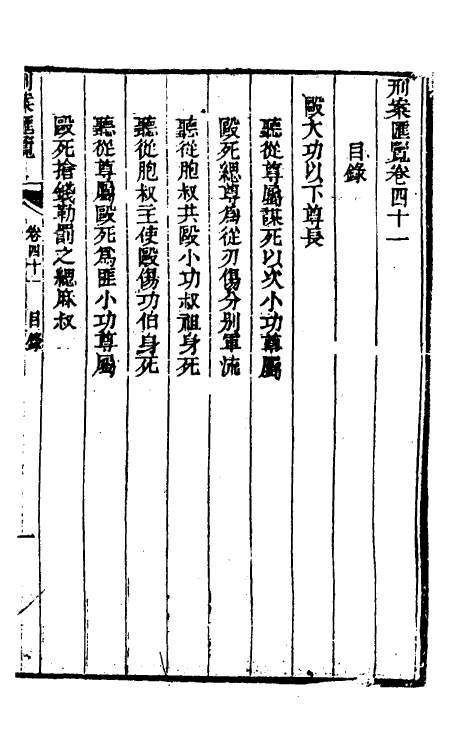 刑案匯覽卷四十一
目錄
毆大功以下尊長
聽從尊屬謀死以次小功尊屬
毆死緦尊為從刃傷分別軍流
聽從胞叔共毆小功叔祖身死
聽從胞叔主使毆傷功伯身死
聽從尊屬毆死為匪小功尊屬
毆死搶錢勒罰之緦麻叔
刑案匯覽 卷四十一 目錄